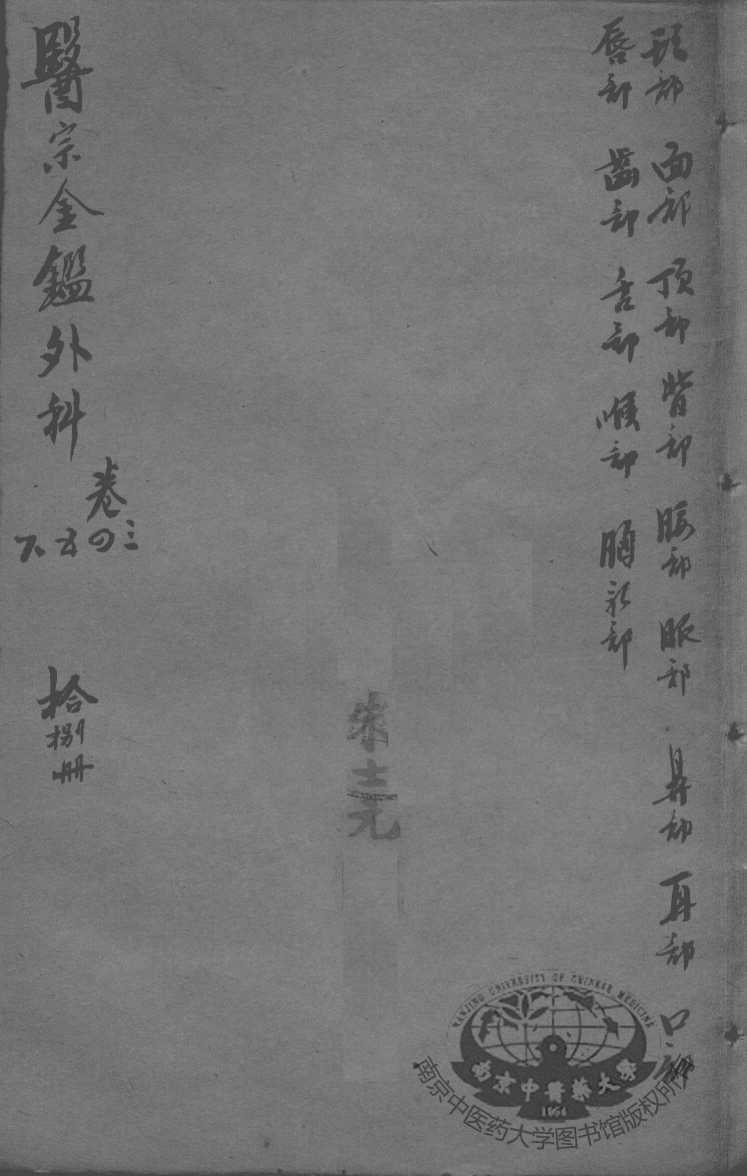 頭部 面部 頂部 背部 腰部 眼部 鼻部 耳部 口部
唇部 齒部 舌部 喉部 胸乳部
朱士元
醫宗金鑑外科
卷三四五六
拾捌冊
NANJING UNIVERSITY OF CHINESE MEDICINE
南京中醫藥大學
1954
南京中医药大学图书馆版权所有